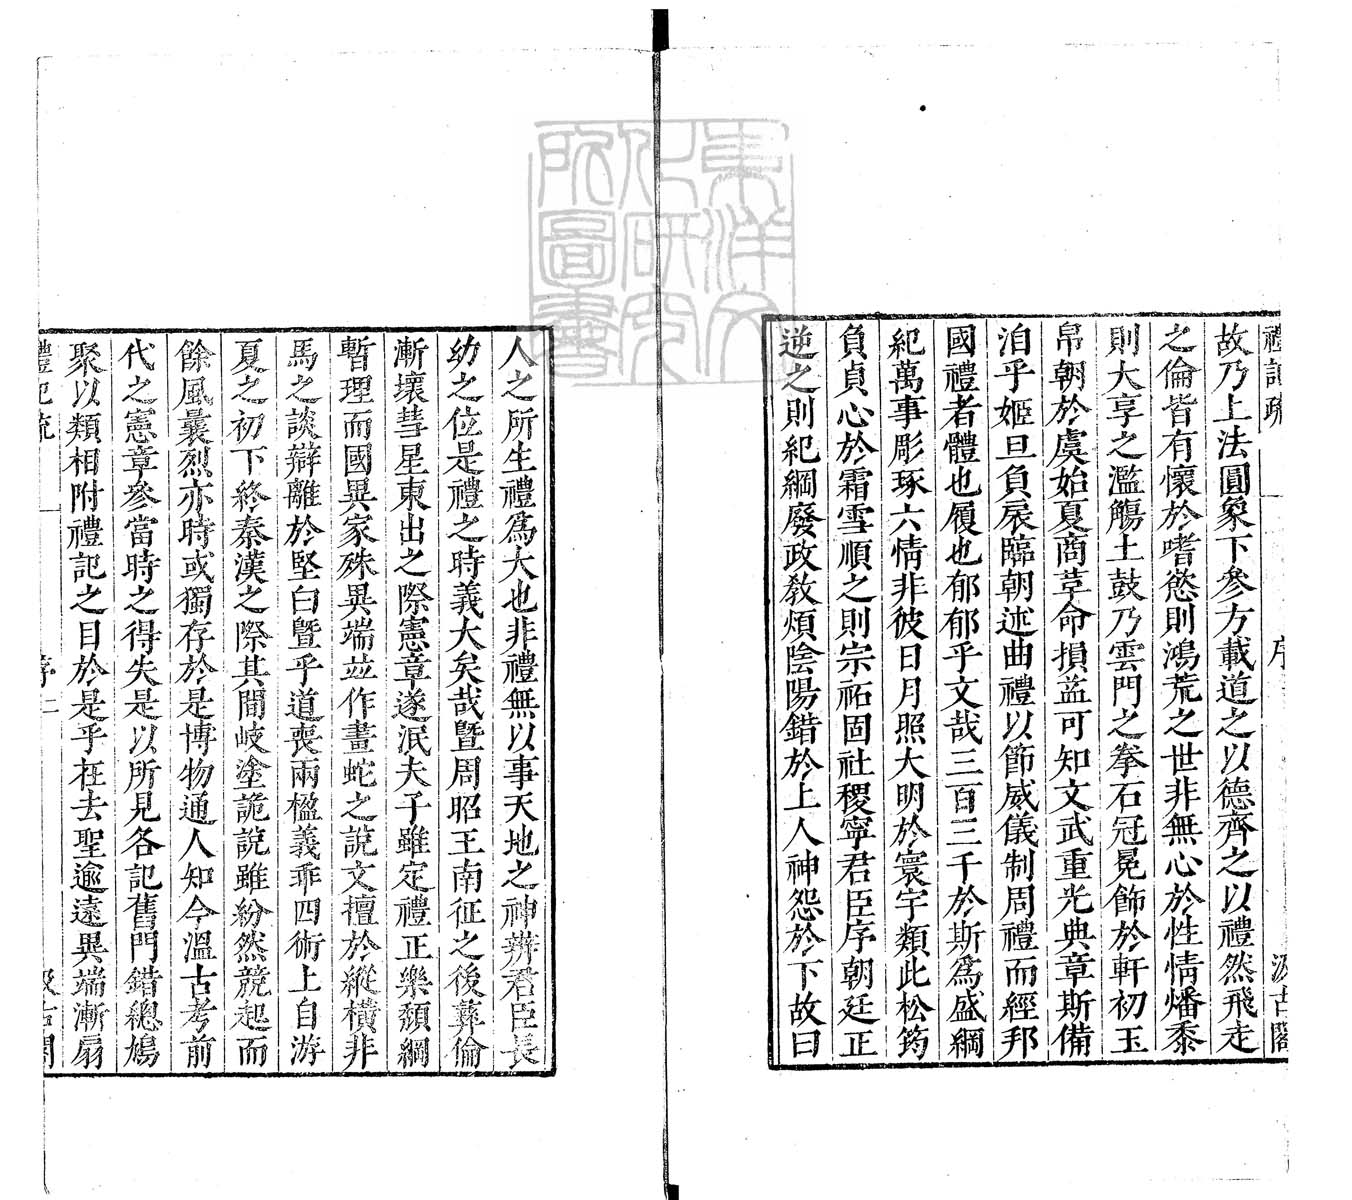 禮記疏 序 汲古閣
故乃上法圓象下參方載道之以德齊之以禮然飛走
之倫皆有懷於嗜慾則鴻荒之世非無心於性情燔黍
則大享之濫觴土鼓乃雲門之拳石冠冕飾於軒初玉
帛朝於虞始夏商革命損益可知文武重光典章斯備
洎乎姬旦負扆臨朝述曲禮以節威儀制周禮而經邦
國禮者體也履也郁郁乎文哉三百三千於斯為盛綱
紀萬事彫琢六情非彼日月照大明於寰宇類此松筠
負貞心於霜雪順之則宗祏固社稷寧君臣序朝廷正
逆之則紀綱廢政教煩陰陽錯於上人神怨於下故曰
人之所生禮為大也非禮無以事天地之神辨君臣長
幼之位是禮之時義大矣哉暨周昭王南征之後彝倫
漸壞彗星東出之際憲章遂泯夫子雖定禮正樂頹綱
暫理而國異家殊異端並作畫蛇之說文擅於縱橫非
馬之談辯離於堅白暨乎道喪兩楹義乖四術上自游
夏之初下終秦漢之際其間岐塗詭說雖紛然競起而
餘風曩烈亦時或獨存於是博物通人知今溫古考前
代之憲章參當時之得失是以所見各記舊門錯總鳩
聚以類相附禮記之目於是乎在去聖逾遠異端漸扇
禮記疏 序二 汲古閣
東洋文
化研究
所圖書